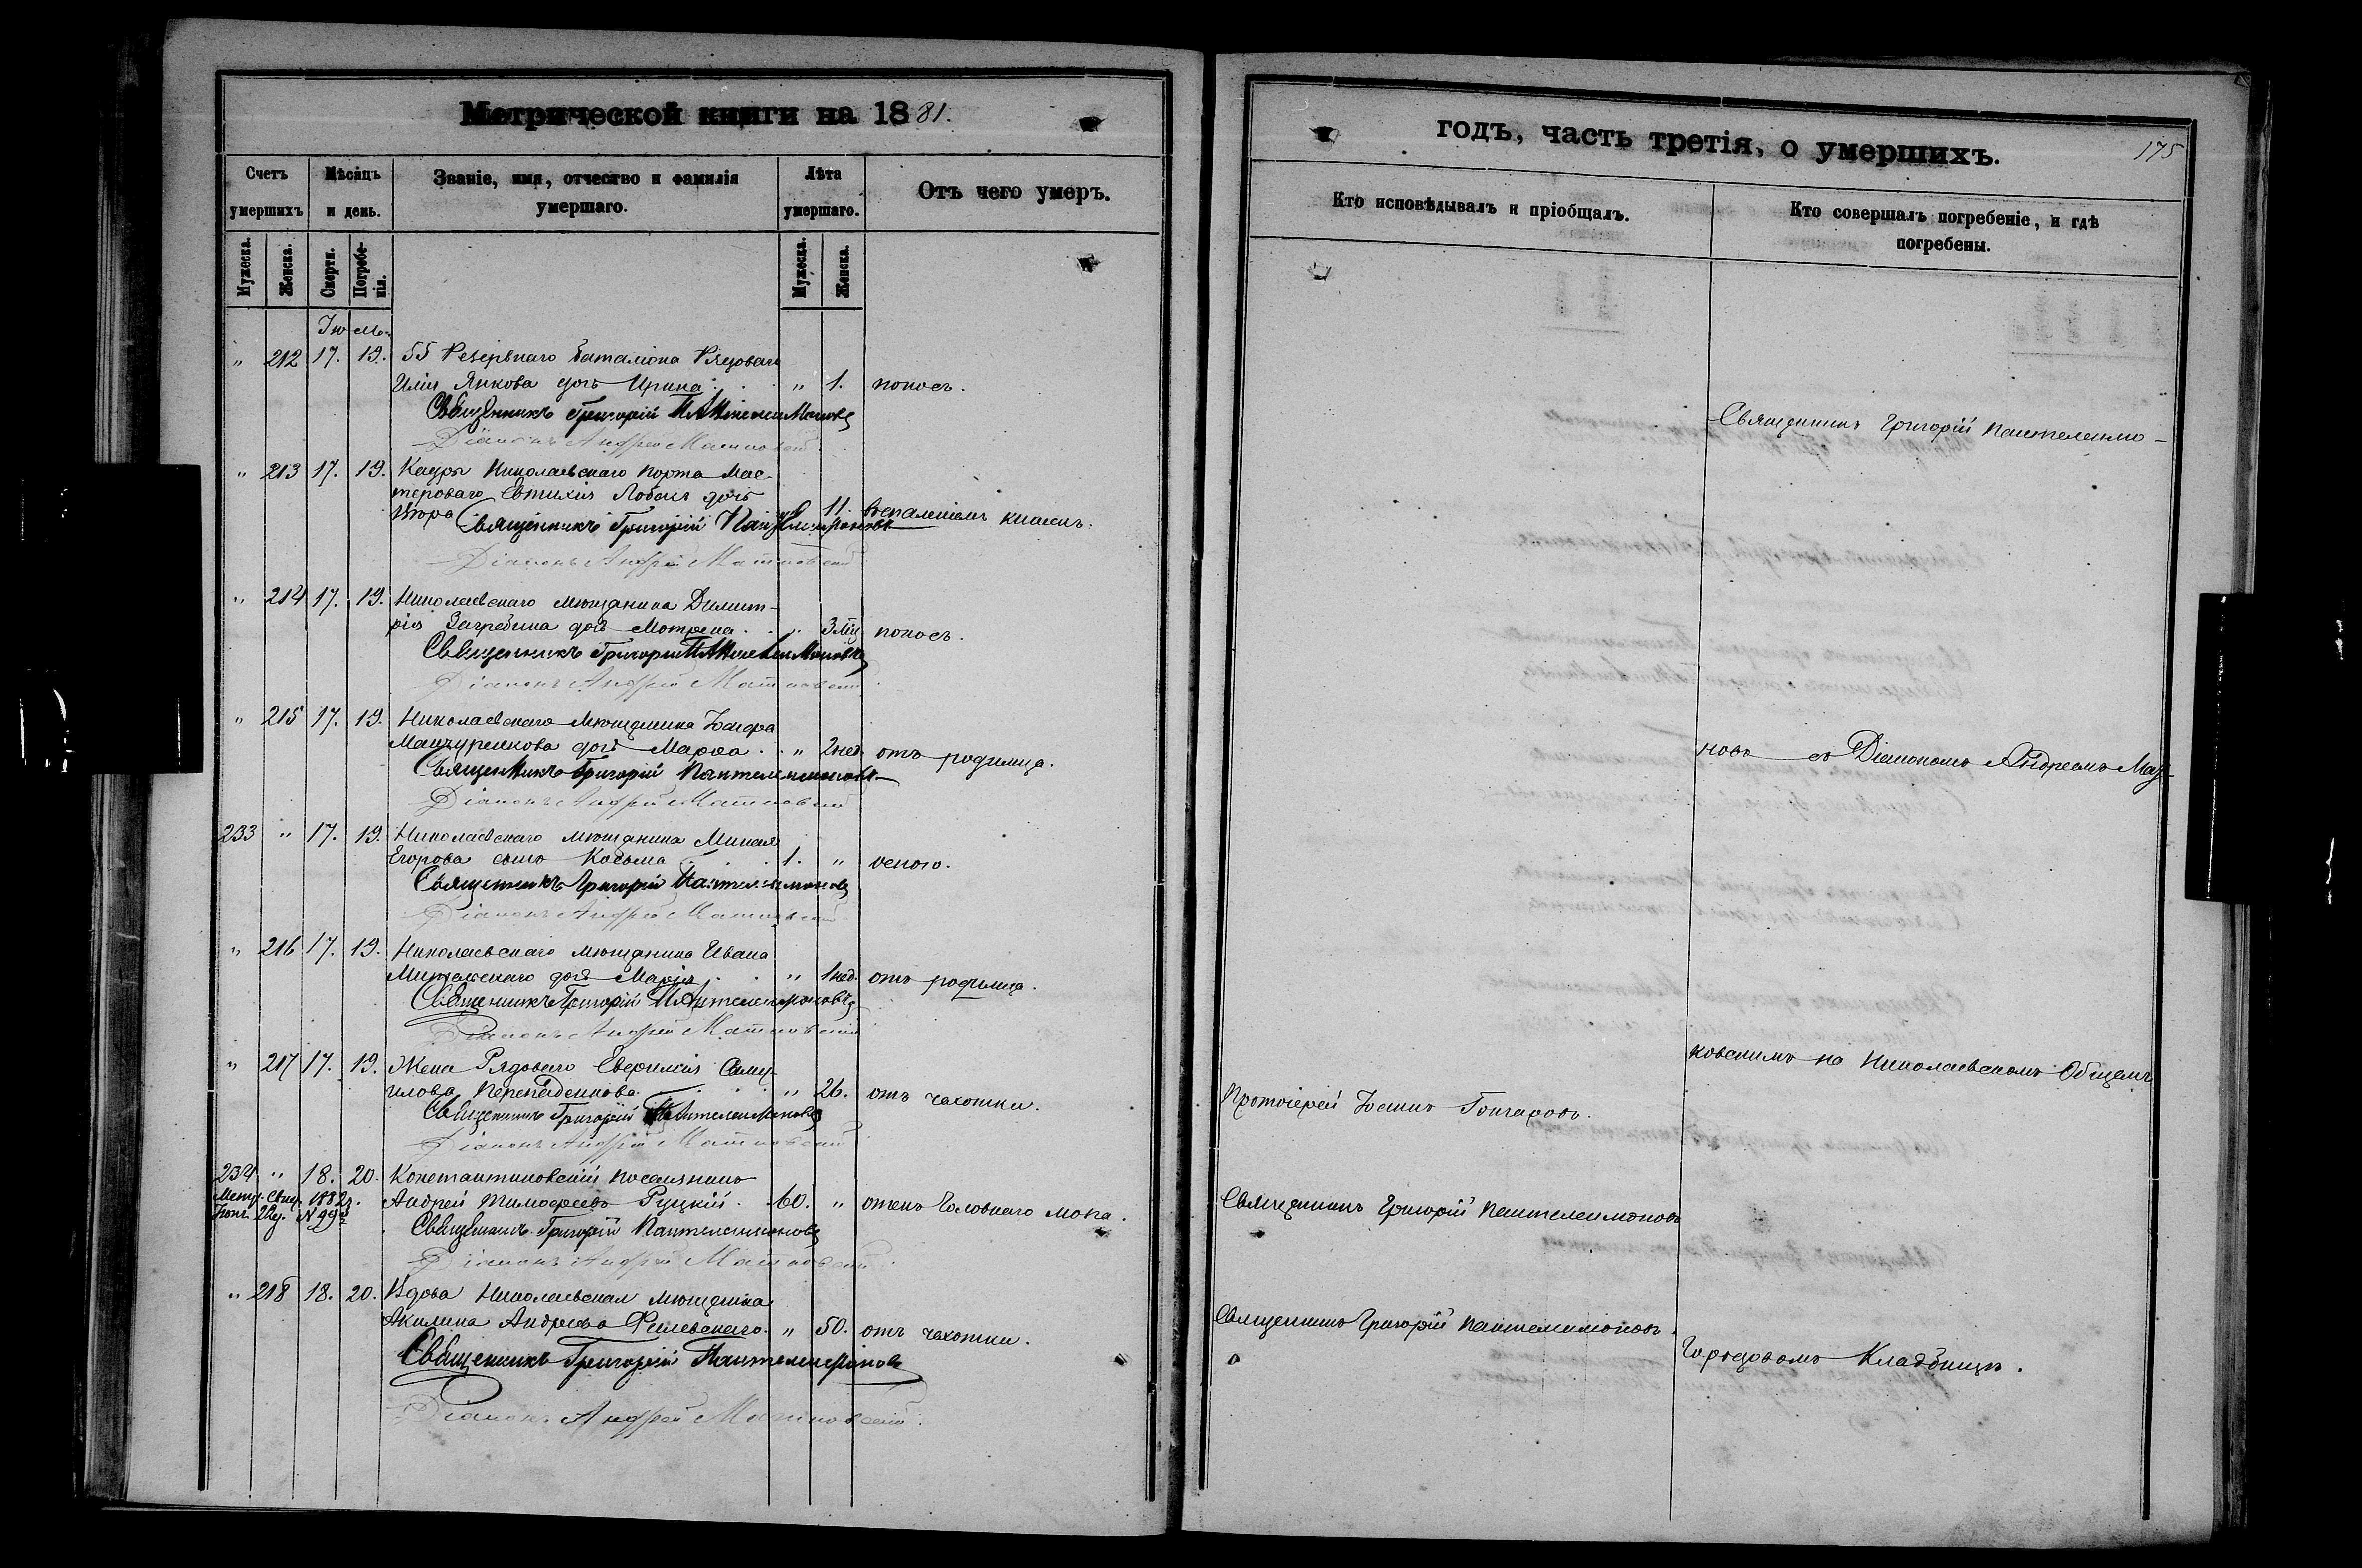 Метрической книги на 1881.
Счетъ умершихъ
Мѣсяцъ и день.
Званіе, имя, отчество и фамилія умершаго.
Лѣта умершаго.
Отъ чего умеръ.
Мужеска.
Женска.
Смерти.
Погребенія.
Мужеска.
Женска.
Іюль
" 212 17. 19. 55 Резервнаго баталіона Рядоваго
Иліи Янкова дочь Ирина " 1. поносъ.
Священникъ Григорій Пантелеимоновъ
Діаконъ Андрей
" 213 17. 19. Кадра Николаевскаго порта Мас-
тероваго Евтихія дочь
Вѣра " 11. воспаленіемъ кишекъ.
Священникъ Григорій Пантелеимоновъ
Діаконъ Андрей
" 214 17. 19. Николаевскаго мѣщанина Димит-
рія Загребина дочь Мотрена " 3 мѣс поносъ.
Священникъ Григорій Пантелеимоновъ
Діаконъ Андрей
" 215 17. 19. Николаевскаго мѣщанина
дочь Марѳа " 2 нед. отъ родимца.
Священникъ Григорій Пантелеимоновъ
Діаконъ Андрей
233 " 17. 19. Николаевскаго мѣщанина
Егорова сынъ Косьма 1. " оспою.
Священникъ Григорій Пантелеимоновъ
Діаконъ Андрей
" 216 17. 19. Николаевскаго мѣщанина Ивана
дочь Марія " 1 нед. отъ родимца.
Священникъ Григорій Пантелеимоновъ
Діаконъ Андрей
" 217 17. 19. Жена Рядоваго Евфимія
" 26. отъ чахотки.
Священникъ Григорій Пантелеимоновъ
Діаконъ Андрей
234 " 18. 20. Константиновскій поселянинъ
Андрей Тимоѳеевъ Руцкій 60. " отекъ Головнаго мозга.
Метр. Свид. 1882 г.
Священникъ Григорій Пантелеимоновъ
Діаконъ Андрей
" 218 18. 20. Вдова Николаевская мѣщанка
Акилина Андреева " 50. отъ чахотки.
Священникъ Григорій Пантелеимоновъ
Діаконъ Андрей
годъ, часть третія, о умершихъ.
175
Кто исповѣдывалъ и пріобщалъ.
Кто совершалъ погребеніе, и гдѣ погребены.
Священникъ Григорій Пантелеимо-
новъ съ Діакономъ Андреемъ
ковскимъ на Николаевскомъ Общемъ
Протоіерей Іоаннъ Гончаровъ.
Священникъ Григорій Пантелеимоновъ
Священникъ Григорій Пантелеимоновъ.
Городовомъ Кладбищѣ.